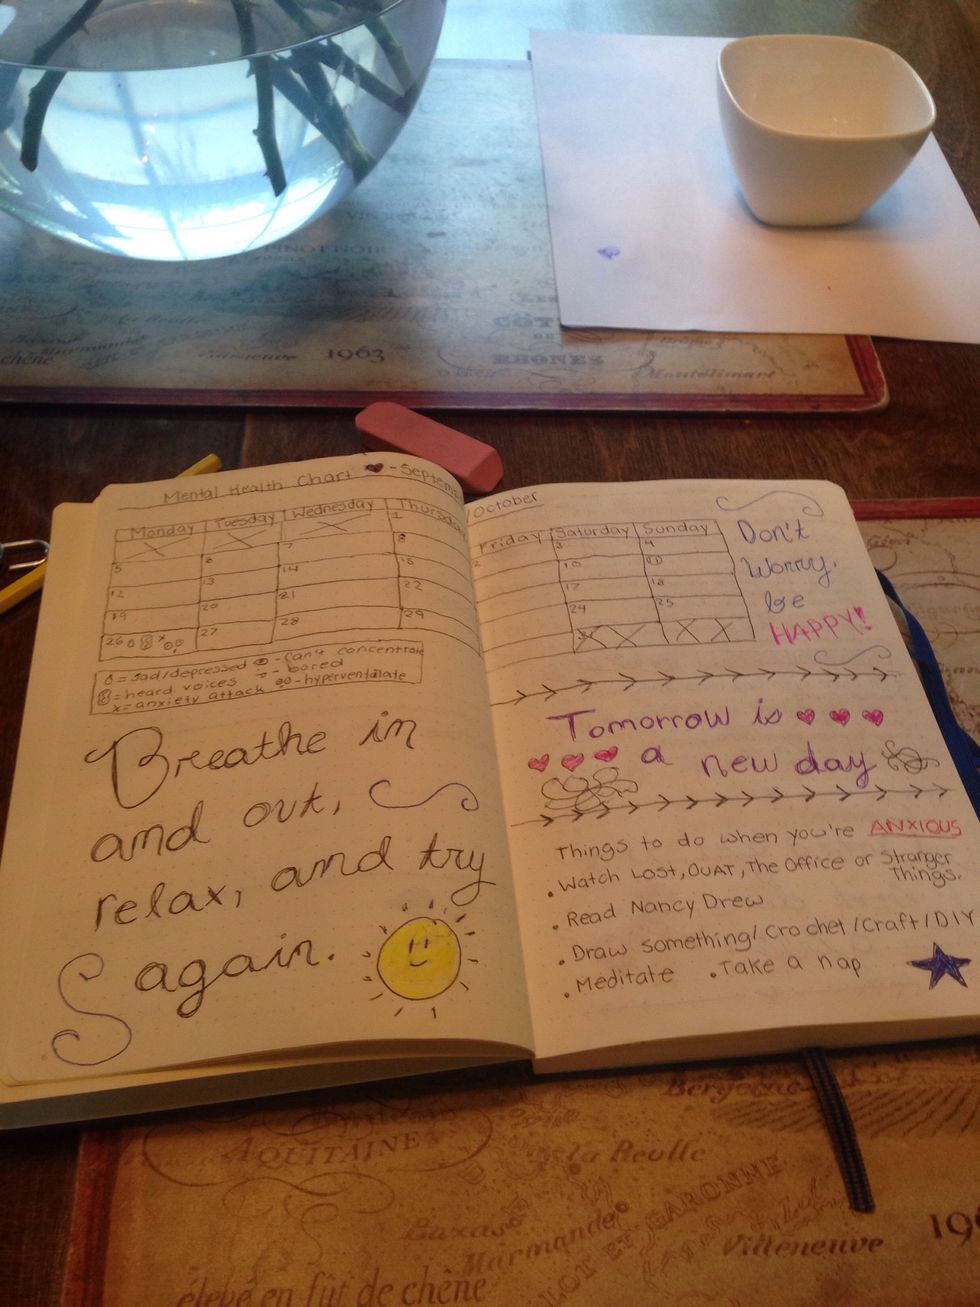 PINOT NOIR
1963
CÔT
DE
RHONES
Montelimart
Villeneuve
chêne
Mental Health Chart ♥ - Septem
Monday Tuesday Wednesday Thursday
1
5 6 7 8
12 13 14 15
19 20 21 22
26 27 28 29
= sad/depressed - can't concentrate
= heard voices - bored
x = anxiety attack - hyperventilate
Breathe in
and out,
relax, and try
again.
/October
Friday Saturday Sunday
2 3 4
10 11
17 18
24 25
31
Don't
Worry,
be
HAPPY!
Tomorrow is ♥ ♥ ♥
♥ ♥ ♥ a new day
Things to do when you're ANXIOUS
• Watch Lost, OUAT, The Office or Stranger
Things.
• Read Nancy Drew
• Draw something/Crochet/Craft/DIY
• Meditate • Take a nap
AQUITAINE
la Reolle
Marmande
LOT ET GARONNE
Villeneuve
élevé en fût de chêne